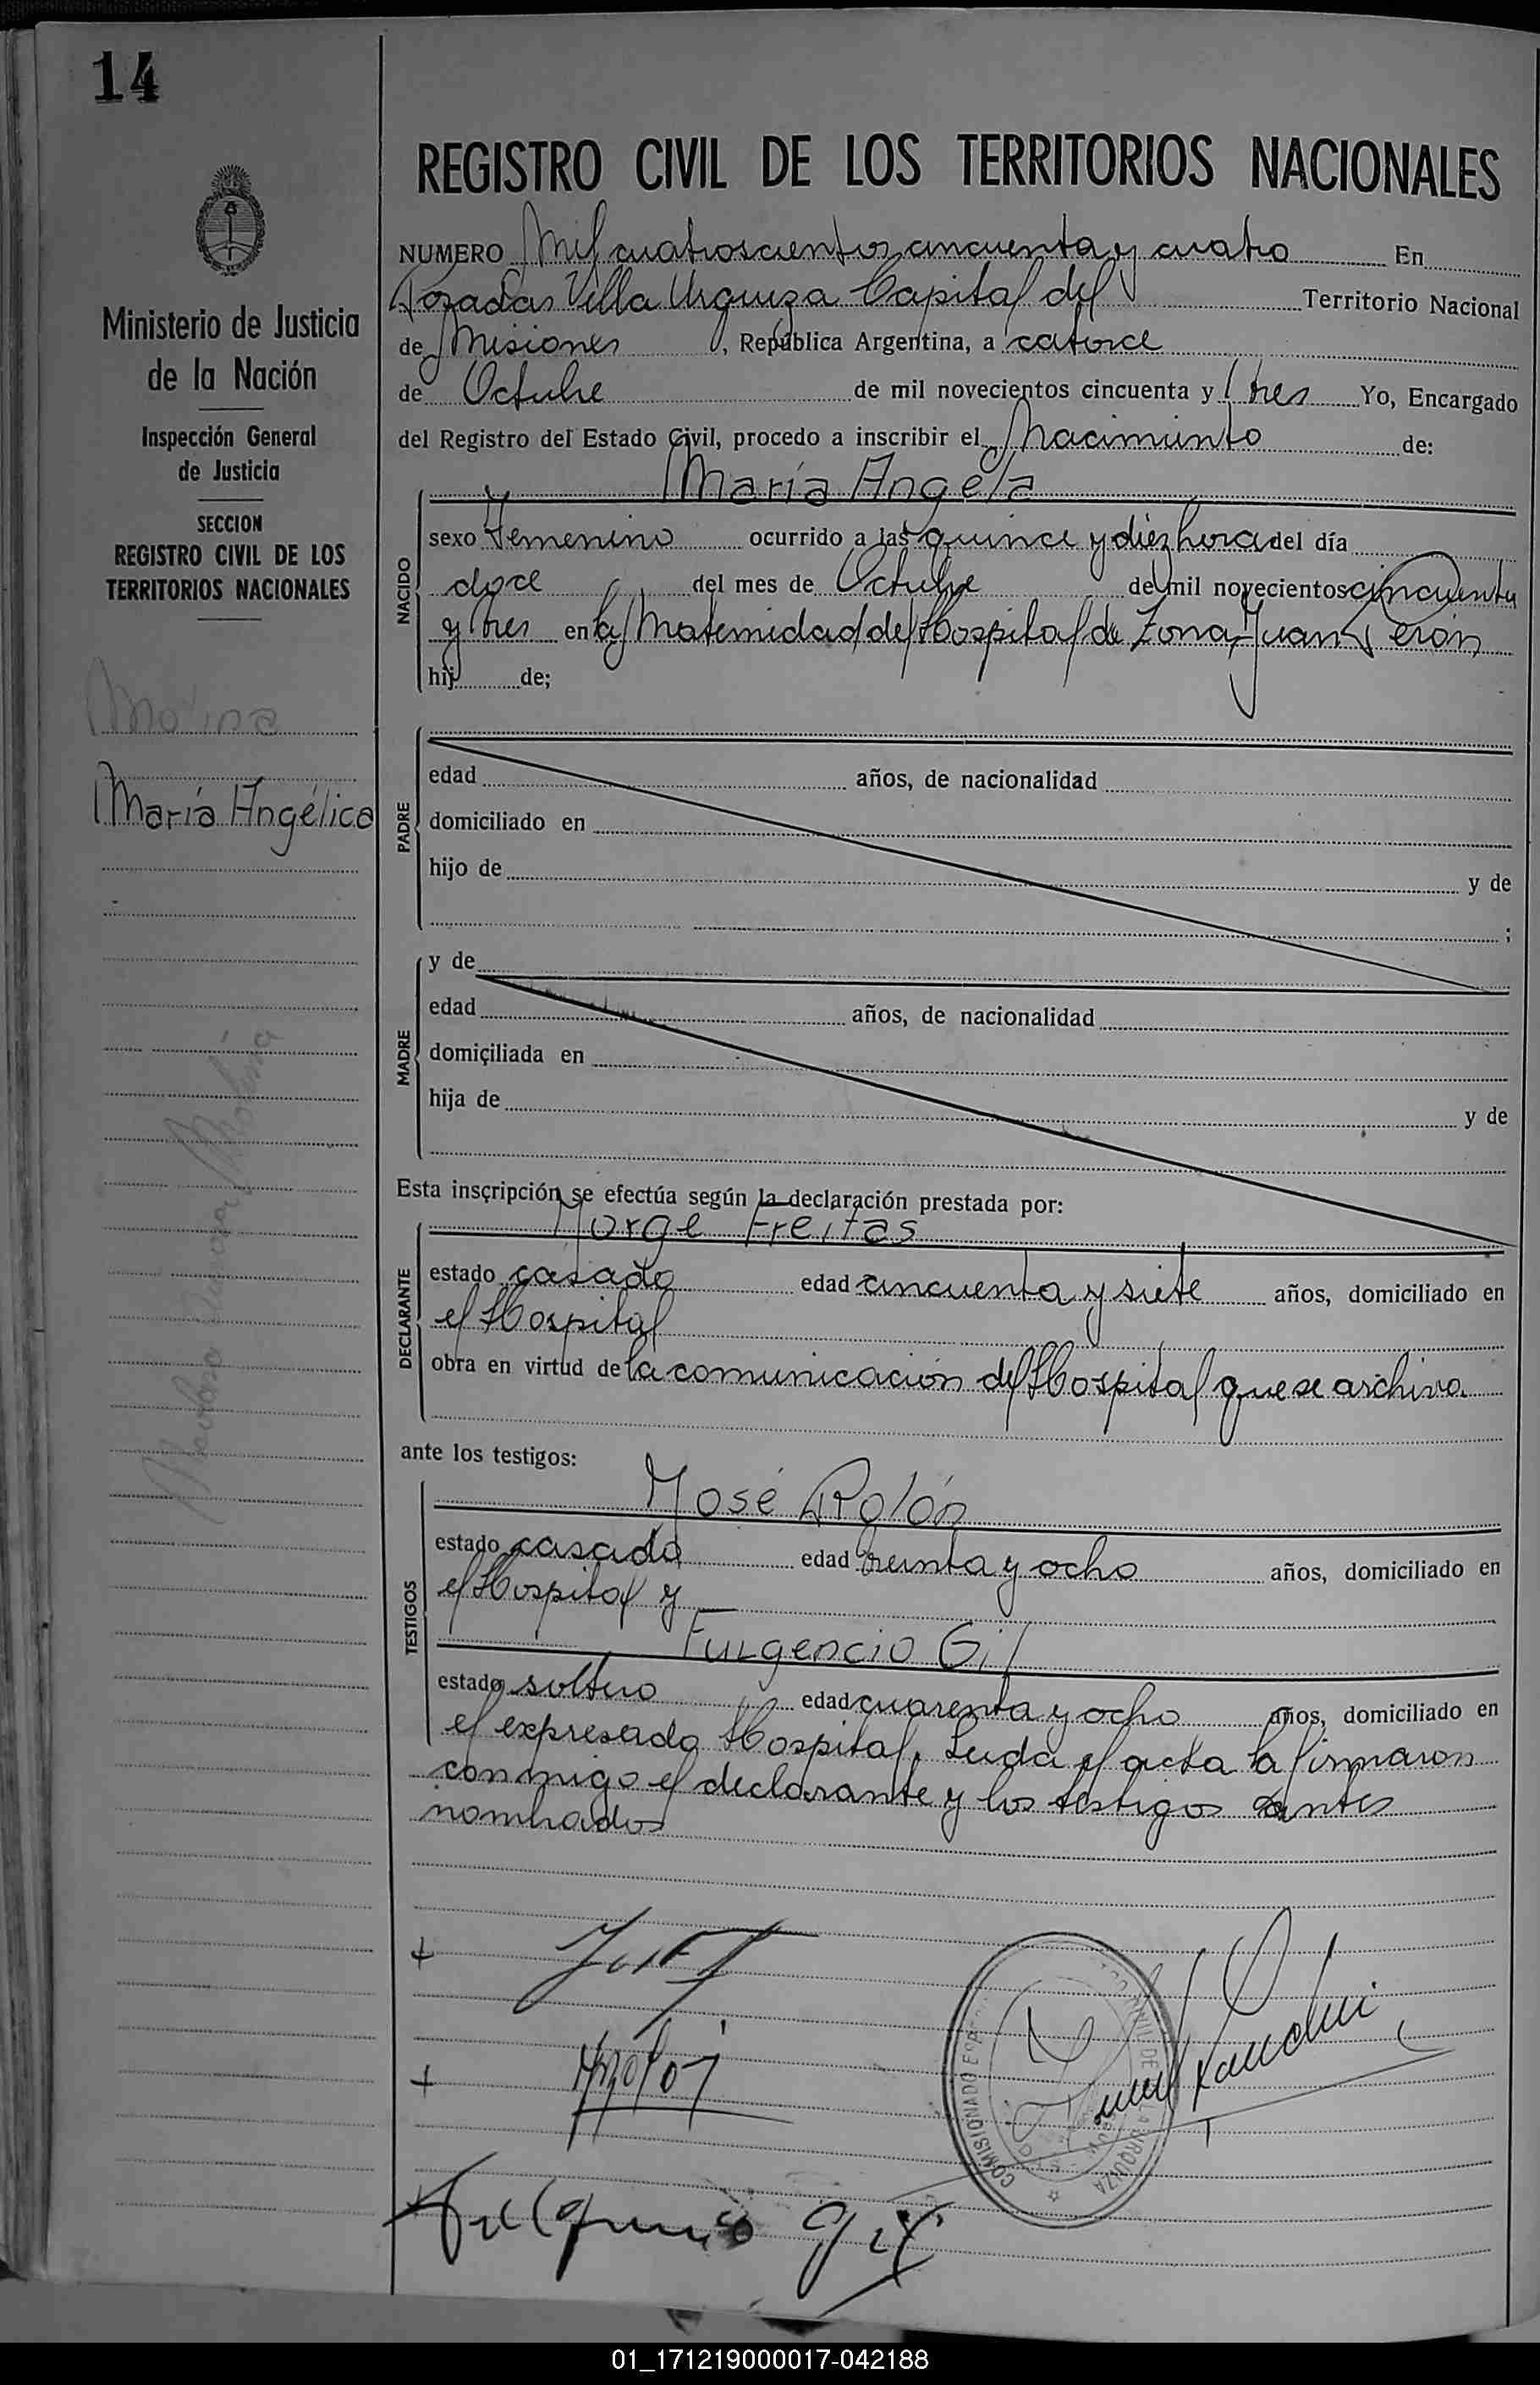 14
REGISTRO CIVIL DE LOS TERRITORIOS NACIONALES
NUMERO Mil cuatroscientos cincuenta y cuatro En
Posadas Villa Urquiza Capital del Territorio Nacional
de Misiones, República Argentina, a catorce
de Octubre de mil novecientos cincuenta y tres Yo, Encargado
del Registro del Estado Civil, procedo a inscribir el Nacimiento de:
Ministerio de Justicia
de la Nación
Inspección General
de Justicia
SECCION
REGISTRO CIVIL DE LOS
TERRITORIOS NACIONALES
Molina
María Angélica
NACIDO
María Angela
sexo Femenino ocurrido a las quince y diez hora del día
doce del mes de Octubre de mil novecientos cincuenta
y tres en la Maternidad del Hospital de Zona, Juan Perón
hij de;
PADRE
edad años, de nacionalidad
domiciliado en
hijo de y de
;
MADRE
y de
edad años, de nacionalidad
domiciliada en
hija de y de
Esta inscripción se efectúa según la declaración prestada por:
DECLARANTE
Jorge Freitas
estado casado edad cincuenta y siete años, domiciliado en
el Hospital
obra en virtud de la comunicación del Hospital que se archiva
ante los testigos:
TESTIGOS
José Rolón
estado casado edad treinta y ocho años, domiciliado en
el Hospital y
Fulgencio Gil
estado soltero edad cuarenta y ocho años, domiciliado en
el expresado Hospital. Leida el acta la firmaron
conmigo el declarante y los testigos antes
nombrados
Fulgencio Gil
COMISIONADO
URQUIZA
01_171219000017-042188